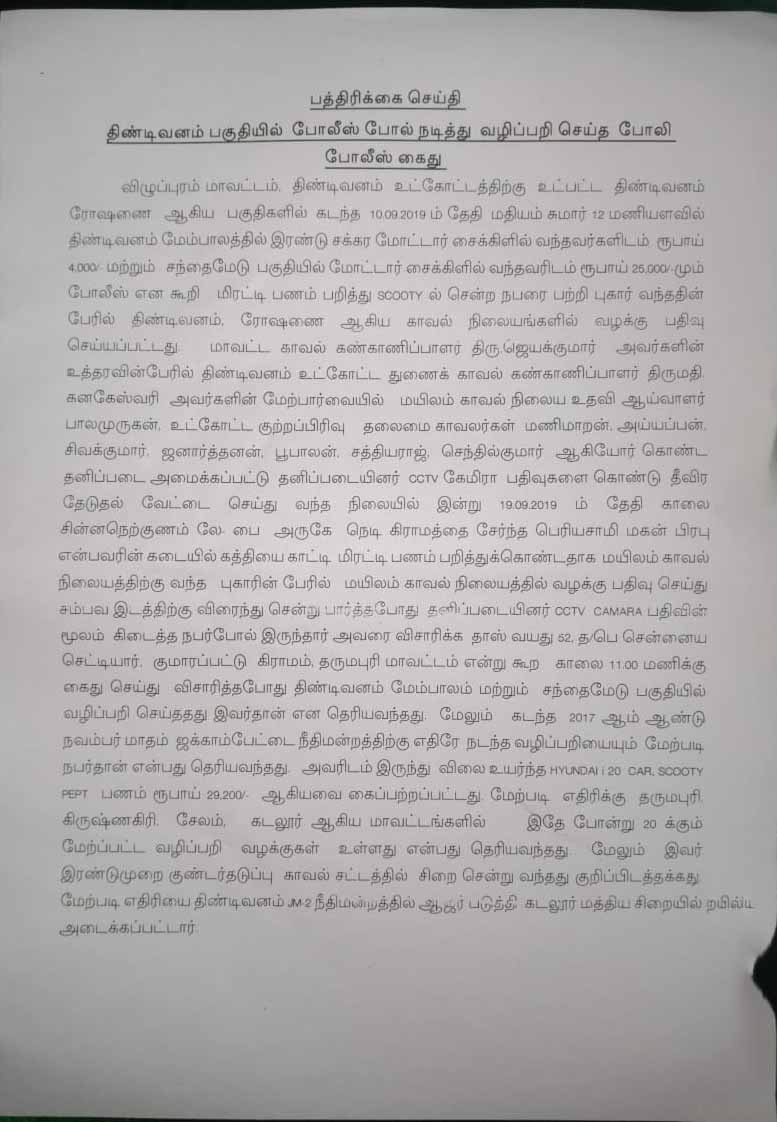 பத்திரிக்கை செய்தி
திண்டிவனம் பகுதியில் போலீஸ் போல் நடித்து வழிப்பறி செய்த போலி
போலீஸ் கைது
விழுப்புரம் மாவட்டம், திண்டிவனம் உட்கோட்டத்திற்கு உட்பட்ட திண்டிவனம்
ரோஷணை ஆகிய பகுதிகளில் கடந்த 10.09.2019 ம் தேதி மதியம் சுமார் 12 மணியளவில்
திண்டிவனம் மேம்பாலத்தில் இரண்டு சக்கர மோட்டார் சைக்கிளில் வந்தவர்களிடம் ரூபாய்
4,000/- மற்றும் சந்தைமேடு பகுதியில் மோட்டார் சைக்கிளில் வந்தவரிடம் ரூபாய் 25,000/-மும்
போலீஸ் என கூறி மிரட்டி பணம் பறித்து SCOOTY ல் சென்ற நபரை பற்றி புகார் வந்ததின்
பேரில் திண்டிவனம், ரோஷணை ஆகிய காவல் நிலையங்களில் வழக்கு பதிவு
செய்யப்பட்டது. மாவட்ட காவல் கண்காணிப்பாளர் திரு.ஜெயக்குமார் அவர்களின்
உத்தரவின்பேரில் திண்டிவனம் உட்கோட்ட துணைக் காவல் கண்காணிப்பாளர் திருமதி.
கனகேஸ்வரி அவர்களின் மேற்பார்வையில் மயிலம் காவல் நிலைய உதவி ஆய்வாளர்
பாலமுருகன், உட்கோட்ட குற்றப்பிரிவு தலைமை காவலர்கள் மணிமாறன், அய்யப்பன்,
சிவக்குமார், ஜனார்த்தனன், பூபாலன், சத்தியராஜ், செந்தில்குமார் ஆகியோர் கொண்ட
தனிப்படை அமைக்கப்பட்டு தனிப்படையினர் CCTV கேமிரா பதிவுகளை கொண்டு தீவிர
தேடுதல் வேட்டை செய்து வந்த நிலையில் இன்று 19.09.2019 ம் தேதி காலை
சின்னநெற்குணம் லே- பை அருகே நெடி கிராமத்தை சேர்ந்த பெரியசாமி மகன் பிரபு
என்பவரின் கடையில் கத்தியை காட்டி மிரட்டி பணம் பறித்துக்கொண்டதாக மயிலம் காவல்
நிலையத்திற்கு வந்த புகாரின் பேரில் மயிலம் காவல் நிலையத்தில் வழக்கு பதிவு செய்து
சம்பவ இடத்திற்கு விரைந்து சென்று பார்த்தபோது தனிப்படையினர் CCTV CAMARA பதிவின்
மூலம் கிடைத்த நபர்போல் இருந்தார் அவரை விசாரிக்க தாஸ் வயது 52, த/பெ சென்னைய
செட்டியார், குமாரப்பட்டு கிராமம், தருமபுரி மாவட்டம் என்று கூற காலை 11.00 மணிக்கு
கைது செய்து விசாரித்தபோது திண்டிவனம் மேம்பாலம் மற்றும் சந்தைமேடு பகுதியில்
வழிப்பறி செய்ததது இவர்தான் என தெரியவந்தது. மேலும் கடந்த 2017 ஆம் ஆண்டு
நவம்பர் மாதம் ஜக்காம்பேட்டை நீதிமன்றத்திற்கு எதிரே நடந்த வழிப்பறியையும் மேற்படி
நபர்தான் என்பது தெரியவந்தது. அவரிடம் இருந்து விலை உயர்ந்த HYUNDAI i 20 CAR, SCOOTY
PEPT பணம் ரூபாய் 29,200/- ஆகியவை கைப்பற்றப்பட்டது. மேற்படி எதிரிக்கு தருமபுரி,
கிருஷ்ணகிரி, சேலம், கடலூர் ஆகிய மாவட்டங்களில் இதே போன்று 20 க்கும்
மேற்ப்பட்ட வழிப்பறி வழக்குகள் உள்ளது என்பது தெரியவந்தது. மேலும் இவர்
இரண்டுமுறை குண்டர்தடுப்பு காவல் சட்டத்தில் சிறை சென்று வந்தது குறிப்பிடத்தக்கது.
மேற்படி எதிரியை திண்டிவனம் JM-2 நீதிமன்றத்தில் ஆஜர் படுத்தி கடலூர் மத்திய சிறையில்
அடைக்கப்பட்டார்.